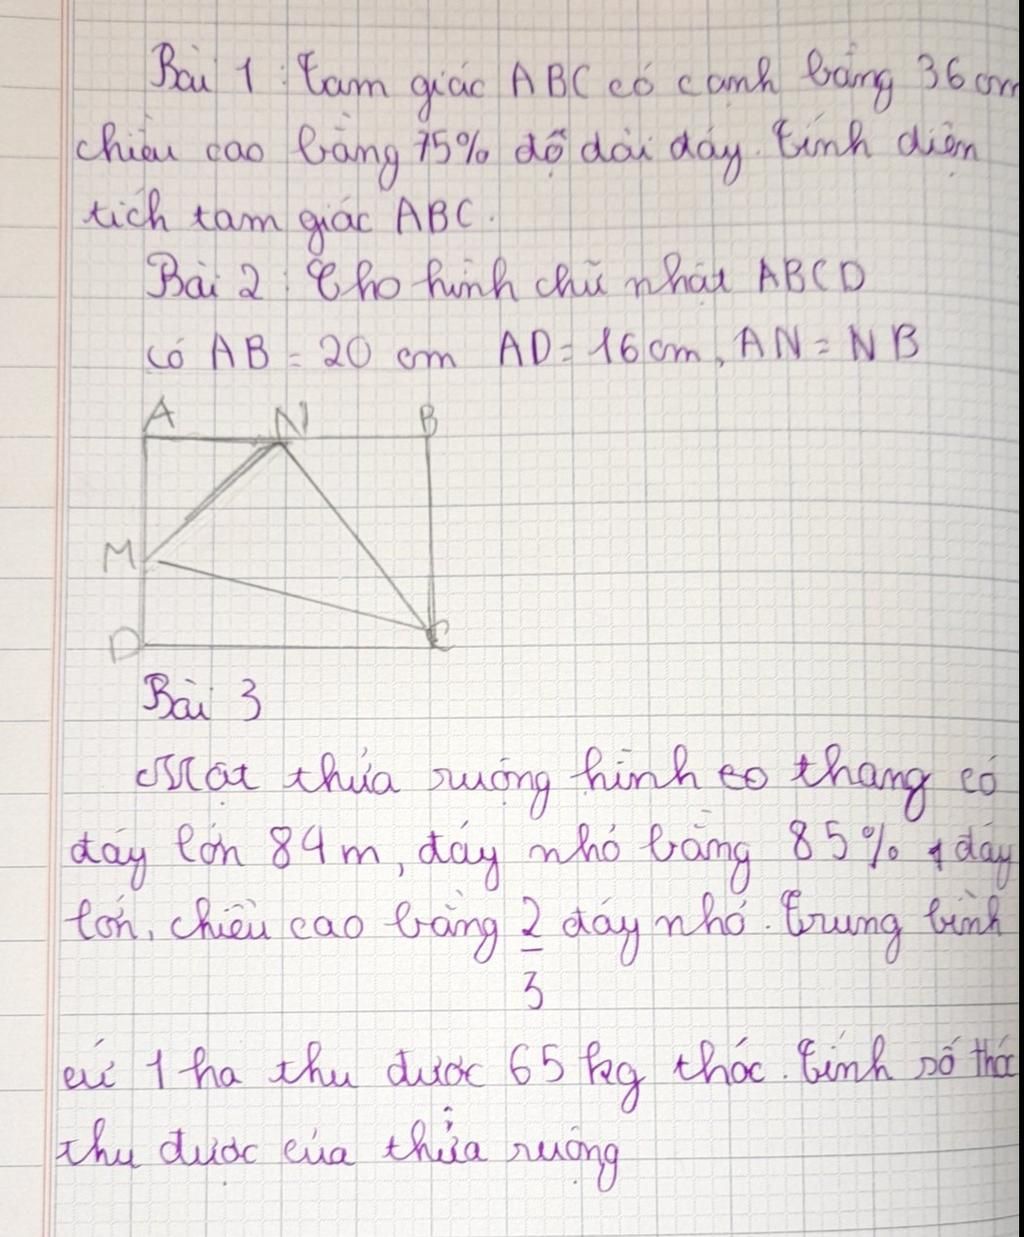 Bài 1 : Tam giác ABC có cạnh bằng 36 cm
chiều cao bằng 75% độ dài đáy. Tính diện
tích tam giác ABC.
Bài 2 : Cho hình chữ nhật ABCD
có AB = 20 cm AD = 16 cm, AN = NB
A N B
M
D C
Bài 3
Một thửa ruộng hình thang có
đáy lớn 84 m, đáy nhỏ bằng 85% đáy
lớn, chiều cao bằng 2/3 đáy nhỏ. Trung bình
cứ 1 ha thu được 65 kg thóc. Tính số thóc
thu được của thửa ruộng